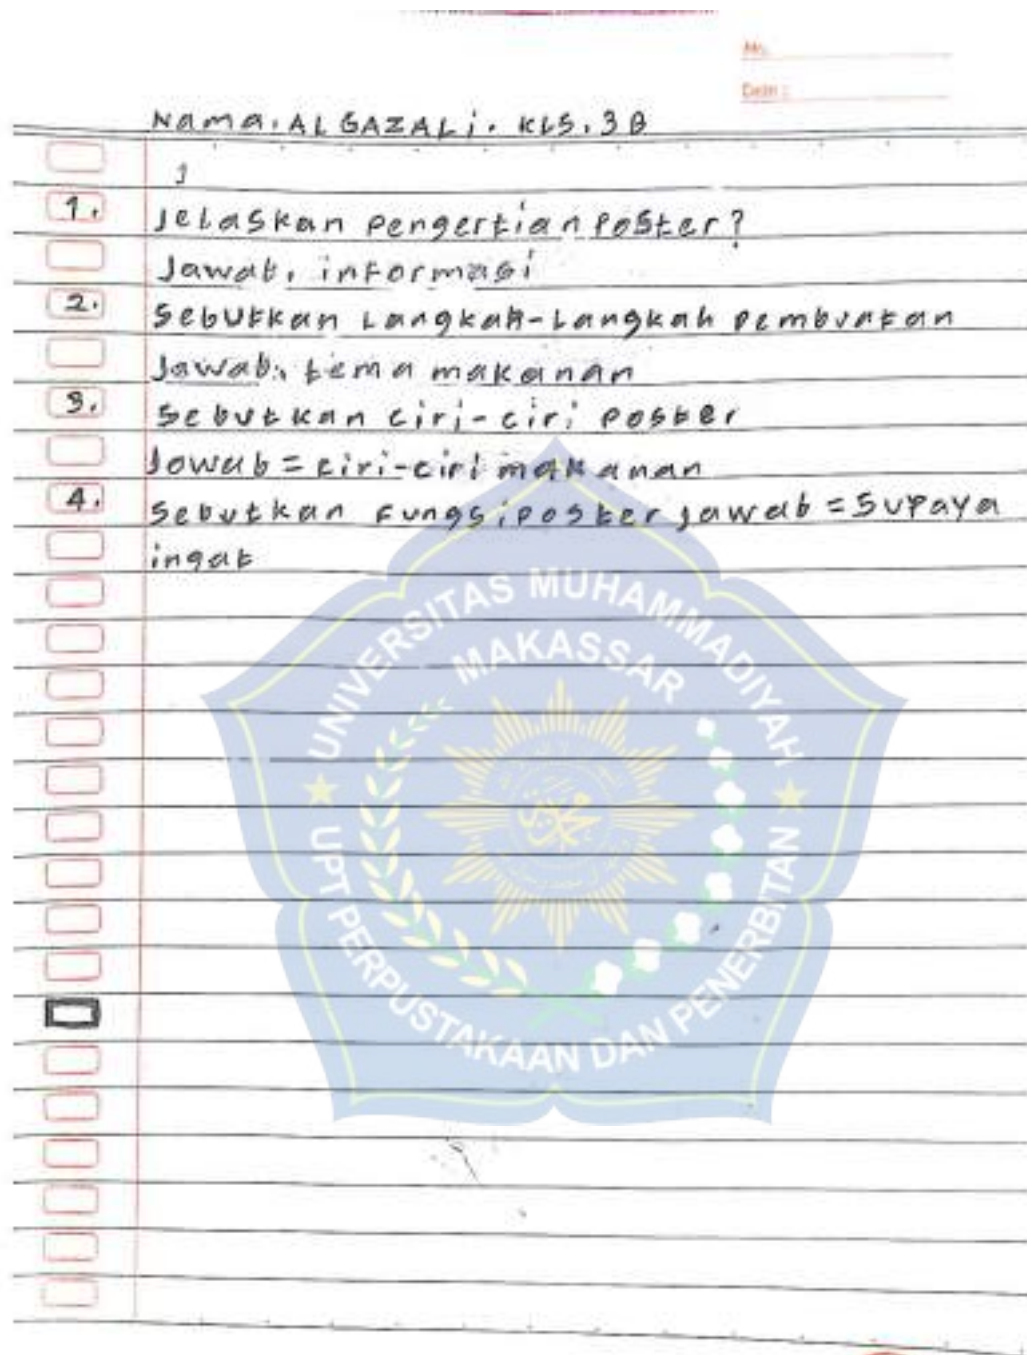 No.
Date :
Nama. AL GAZALi. KLS. 3B
1
1. Jelaskan Pengertian Poster?
Jawab. informasi
2. Sebutkan Langkah-Langkah pembuatan
Jawab. tema makanan
3. Sebutkan ciri-ciri poster
Jawab = ciri-ciri makanan
4. Sebutkan Fungsi poster Jawab = Supaya
ingat
UNIVERSITAS MUHAMMADIYAH
MAKASSAR
UPT PERPUSTAKAAN DAN PENERBITAN